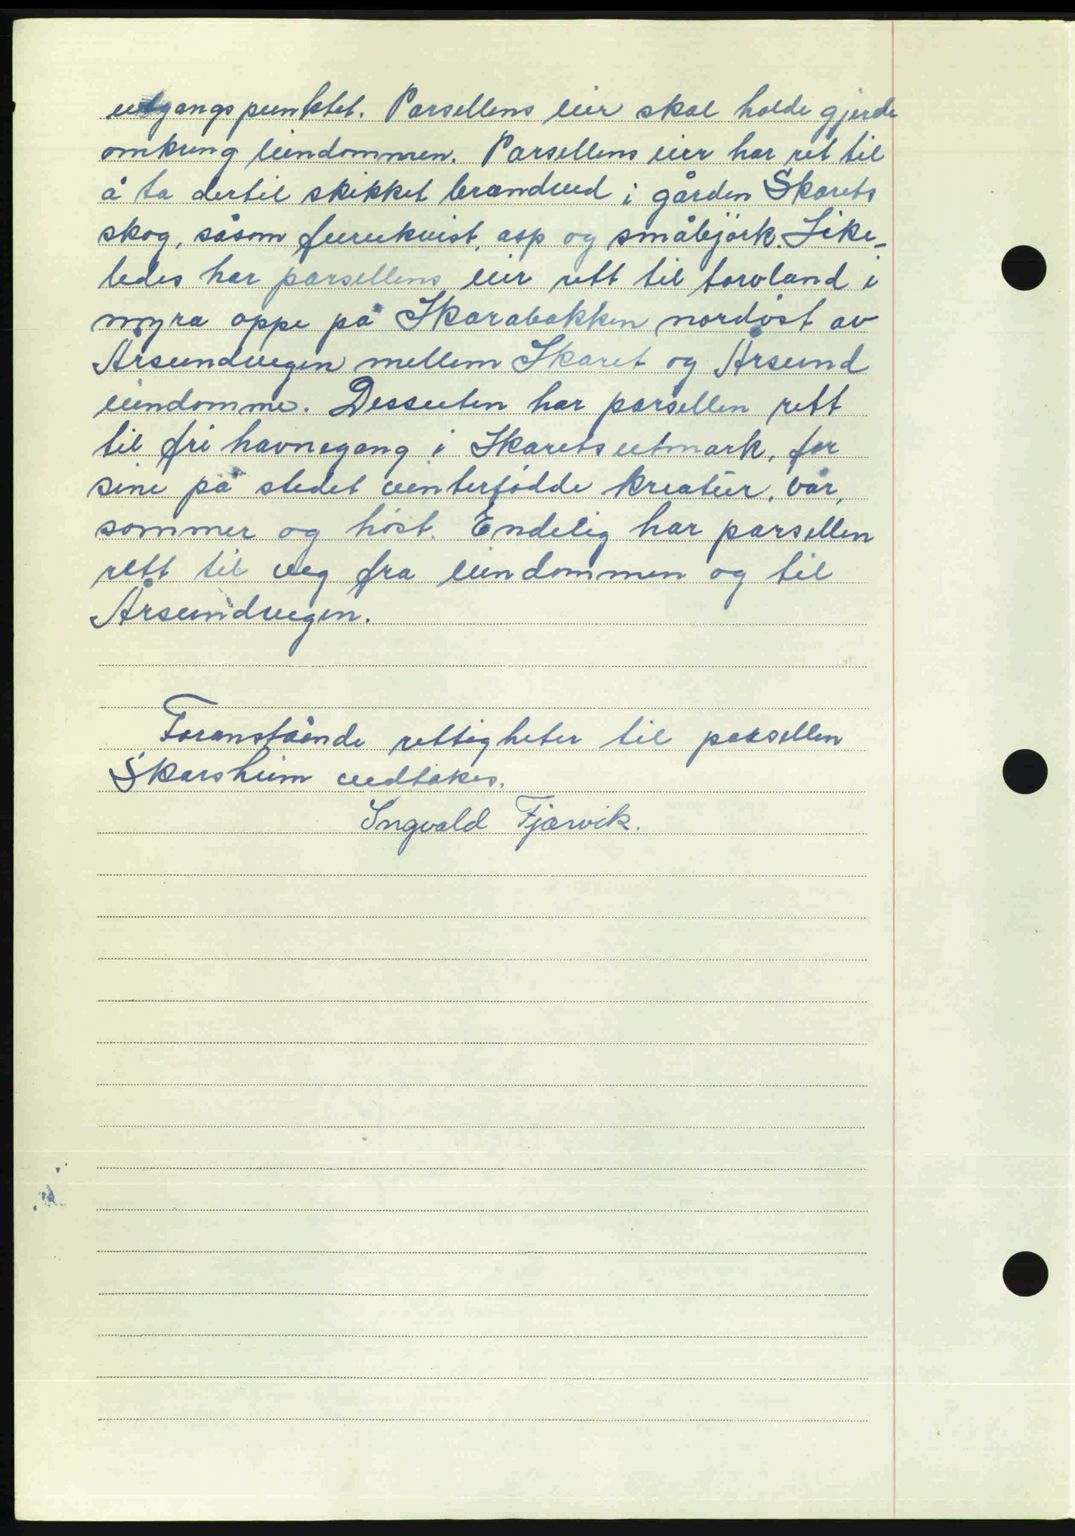 utgangspunktet. Parsellens eier skal holde gjerde
omkring eiendommen. Parsellens eier har ret til
å ta dertil skikket brændved i gården Skarets
skog, såsom furukvist, asp og småbjörk. Like-
ledes har parsellens eier rett til torvland i
myra oppe på Skarabakken nordöst av
Årsundvegen mellem Skaret og Årsund
eiendomme. Dessuten har parsellen rett
til fri havnegang i Skarets utmark, for
sine på stedet vinterfödde kreatur, vår,
sommer og höst. Endelig har parsellen
rett til veg fra eiendommen og til
Årsundvegen.
Foranstående rettigheter til parsellen
Skarsheim vedtakes.
Ingvald Fjærvik.